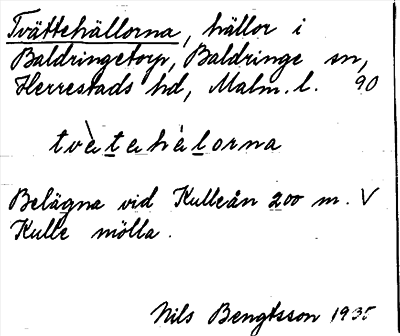 Tvättehällorna, hällor i
Baldringetorp, Baldringe sn,
Herrestads hd, Malm. l. 90
tvètehèlorna
Belägna vid Kulleån 200 m. V
Kulle mölla.
Nils Bengtsson 1935